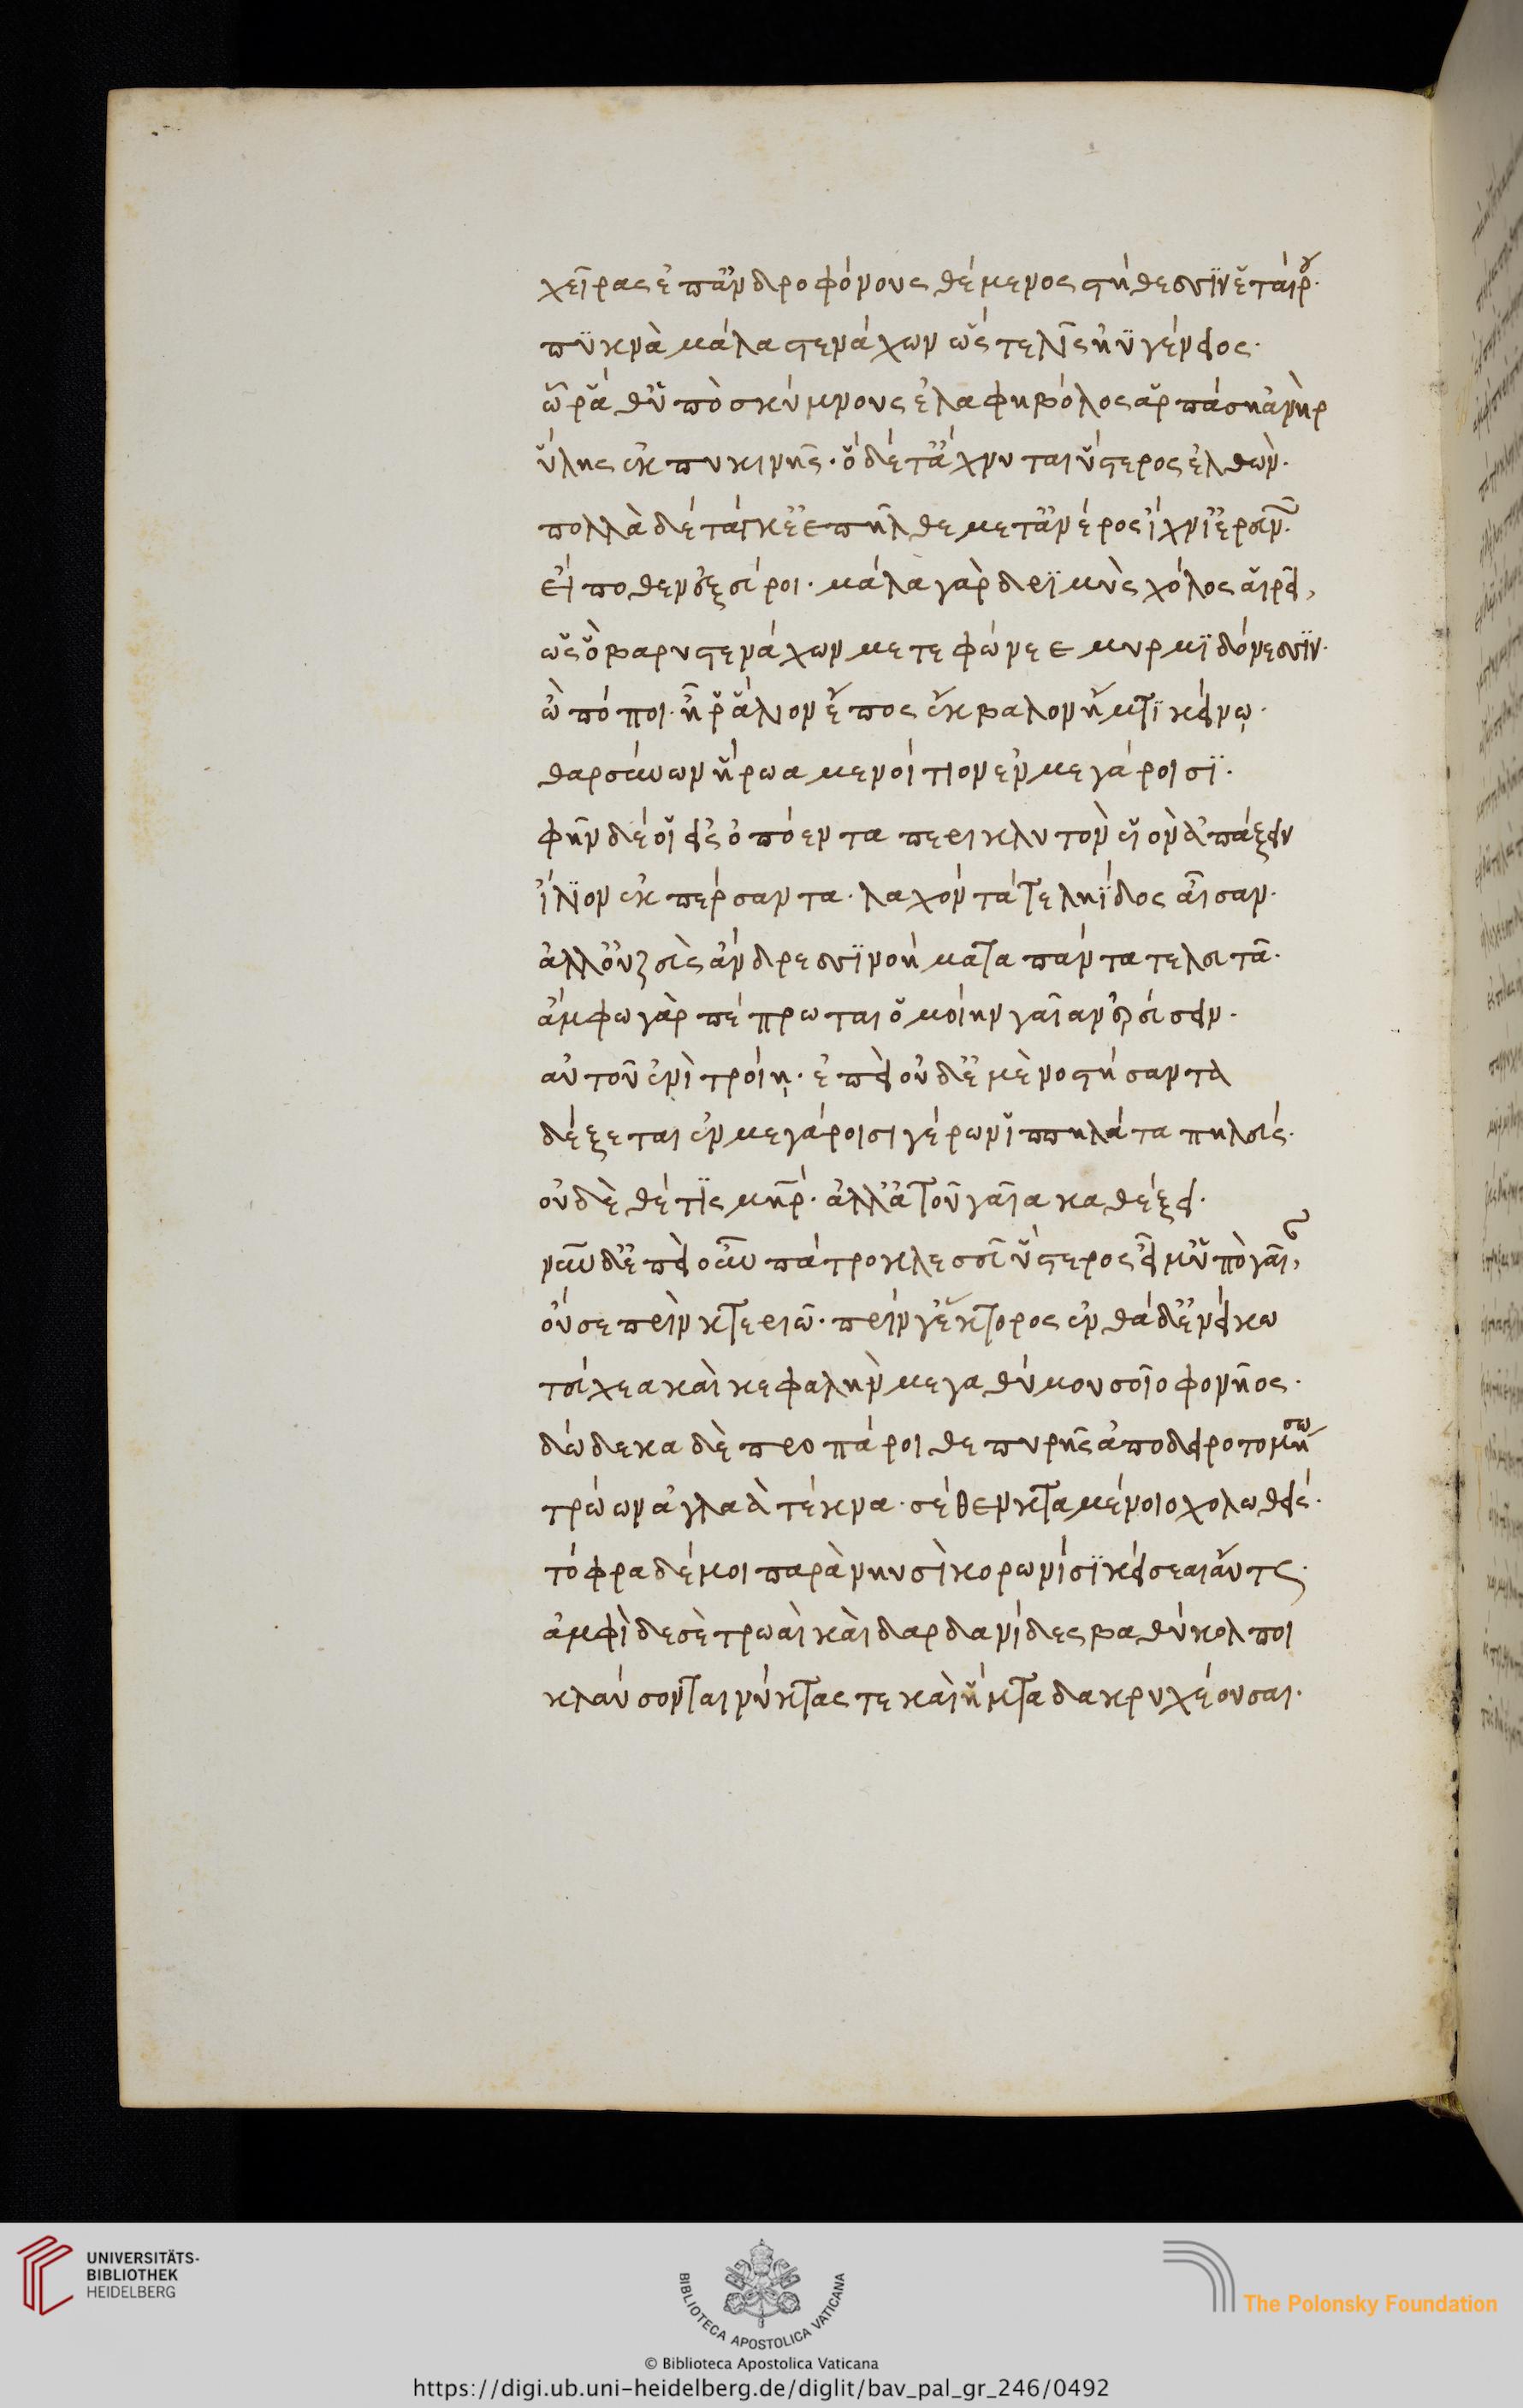 χεῖρας ἐπ' ἀνδροφόνους θέμενος στήθεσσϊν ἑταίρου·
πϋκνὰ μάλα στενάχων ὥς τε λὶς ἠϋγένειος·
ὧ ῥά θ' ὑπὸ σκύμνους ἐλαφηβόλος ἁρπάση ἀνὴρ
ὕλης ἐκ πυκινῆς· ὁ δέ τ' ἄχνυται ὕστερος ἐλθών·
πολλὰ δέ τ' ἄγκε' ἐπῆλθε μετ' ἀνέρος ἴχνϊ' ἐρευνῶν·
εἴ ποθεν ἐξεύροι· μάλα γὰρ δρϊμὺς χόλος αἱρεῖ,
ὣς ὁ βαρυστενάχων μετεφώνεε μυρμϊδόνεσσϊν·
ὢ πόποι· ἦ ῥ' ἅλιον ἔπος ἔκβαλον ἤματϊ κείνῳ·
θαρσύνων ἥρωα μενοίτιον ἐν μεγάροισϊ·
φῆν δέ οἱ εἰς ὀπόεντα περικλυτὸν υἱὸν ἀπάξειν
ἴλϊον ἐκπέρσαντα· λαχόντά τε ληΐδος αἶσαν·
ἀλλ' οὐ ζεὺς ἄνδρεσσϊ νοήματα πάντα τελευτᾶ·
ἄμφω γὰρ πέπρωται ὁμοίην γαῖαν ἐρεύσειν·
αὐτοῦ ἐνὶ τροίῃ· ἐπεὶ οὐδ' ἐμὲ νοστήσαντα
δέξεται ἐν μεγάροισι γέρων ἱππηλάτα πηλεύς·
οὐδὲ θέτϊς μήτηρ· ἀλλ' αὐτοῦ γαῖα καθέξει·
νῦν δ' ἐπεὶ οὖν πάτροκλε σεῦ ὕστερος εἶμ' ὑπὸ γαῖαν,
οὔ σε πρὶν κτεριῶ· πρίν γ' ἕκτορος ἐνθάδ' ἐνείκω
τεύχεα καὶ κεφαλὴν μεγαθύμου σοῖο φονῆος·
δώδεκα δὲ προπάροιθε πυρῆς ἀποδειροτομήσω
τρώων ἀγλαὰ τέκνα· σέθεν κταμένοιο χολωθείς·
τόφρα δέ μοι παρὰ νηυσὶ κορωνίσϊ κείσεαι αὔτως·
ἀμφὶ δὲ σὲ τρωαὶ καὶ δαρδανίδες βαθύκολποι
κλαύσονται νύκτας τε καὶ ἤματα δακρυχέουσαι·
UNIVERSITÄTS-
BIBLIOTHEK
HEIDELBERG
BIBLIOTECA APOSTOLICA VATICANA
The Polonsky Foundation
© Biblioteca Apostolica Vaticana
https://digi.ub.uni-heidelberg.de/diglit/bav_pal_gr_246/0492